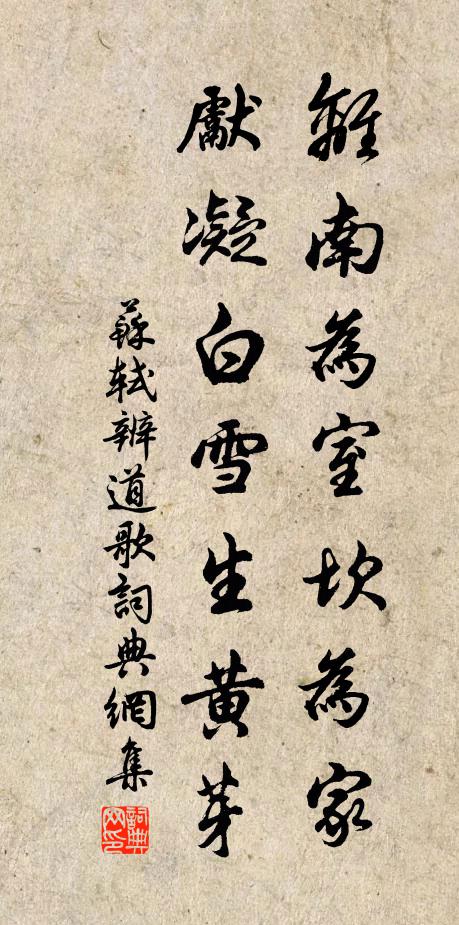 離南為室坎為家
獻凝白雪生黃芽
蘇軾辨道歌詞典網集
詞典網印